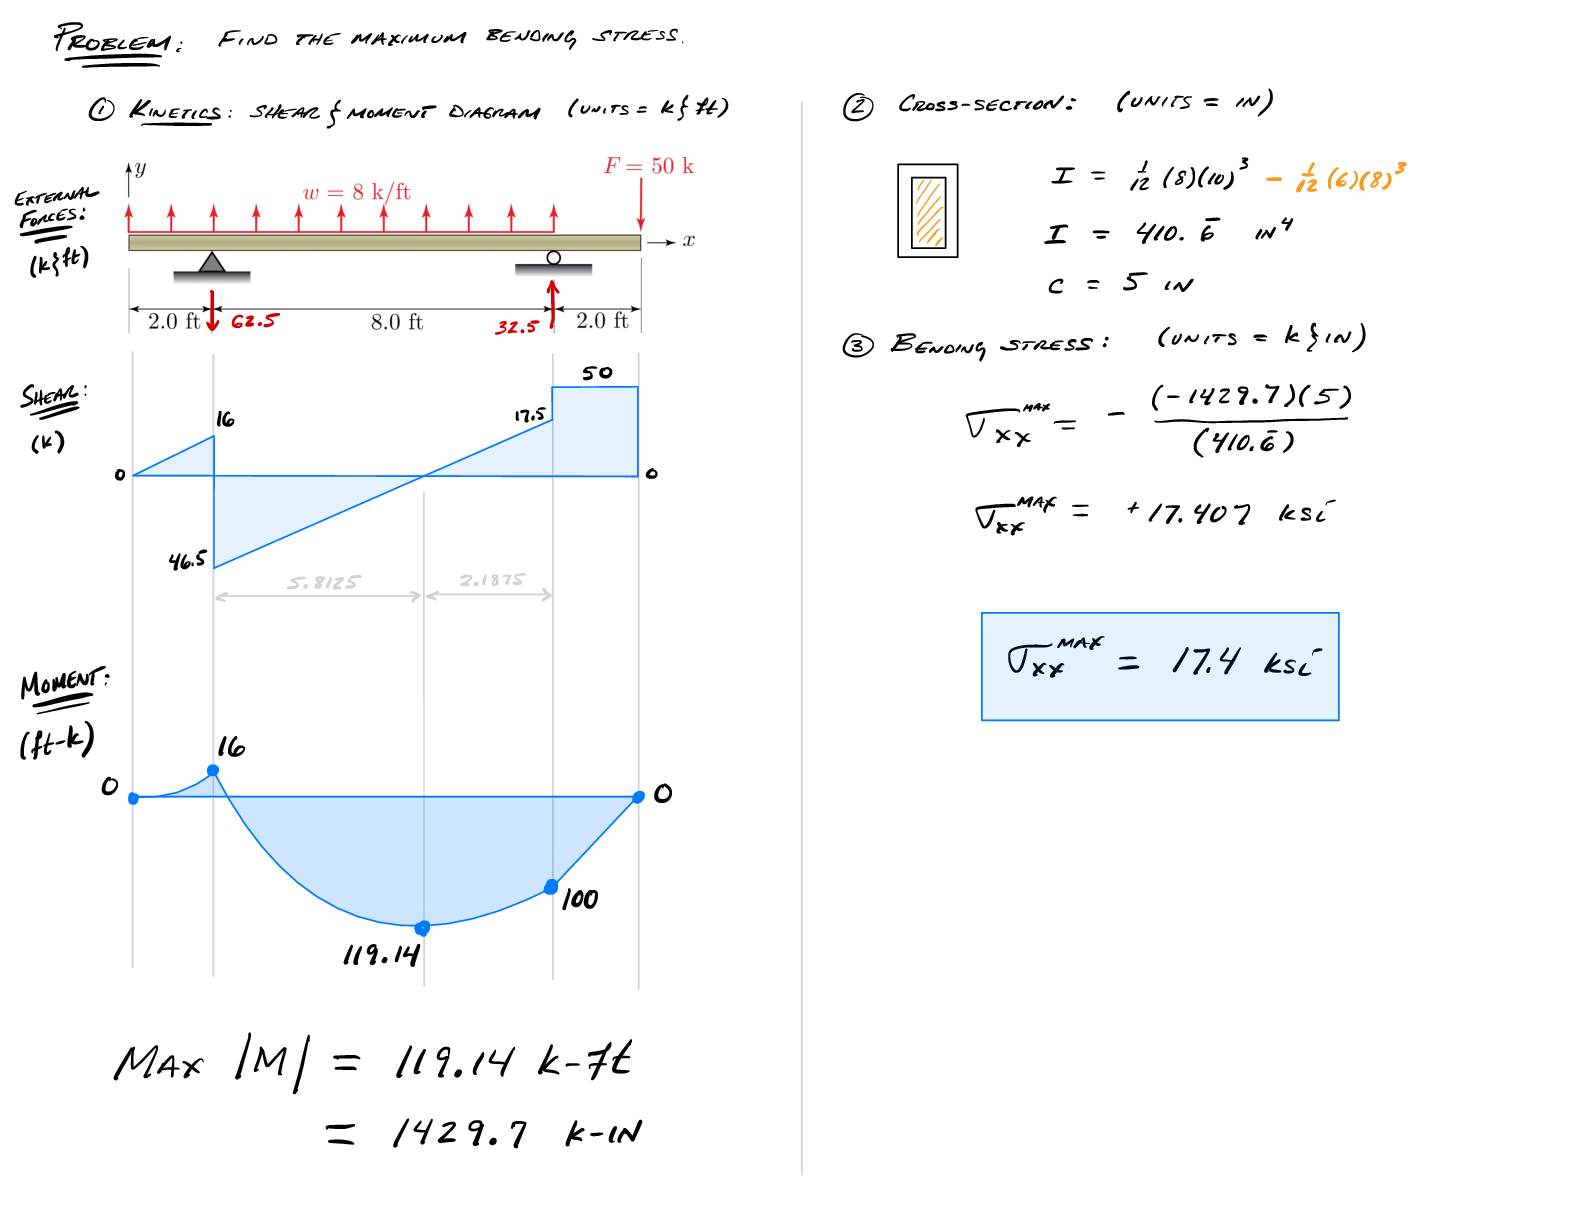 PROBLEM: FIND THE MAXIMUM BENDING STRESS.
① KINETICS: SHEAR & MOMENT DIAGRAM (UNITS = k & ft)
EXTERNAL
FORCES:
(k & ft)
y
w = 8 k/ft
F = 50 k
x
2.0 ft
62.5
8.0 ft
32.5
2.0 ft
SHEAR:
(k)
0
16
46.5
17.5
50
0
5.8125
2.1875
MOMENT:
(ft-k)
0
16
119.14
100
0
MAX |M| = 119.14 k-ft
= 1429.7 k-IN
② CROSS-SECTION: (UNITS = IN)
I = 1/12 (8)(10)³ - 1/12 (6)(8)³
I = 410.6̅ IN⁴
C = 5 IN
③ BENDING STRESS: (UNITS = k & IN)
σxx^MAX = - (-1429.7)(5) / (410.6̅)
σxx^MAX = +17.407 ksi
σxx^MAX = 17.4 ksi